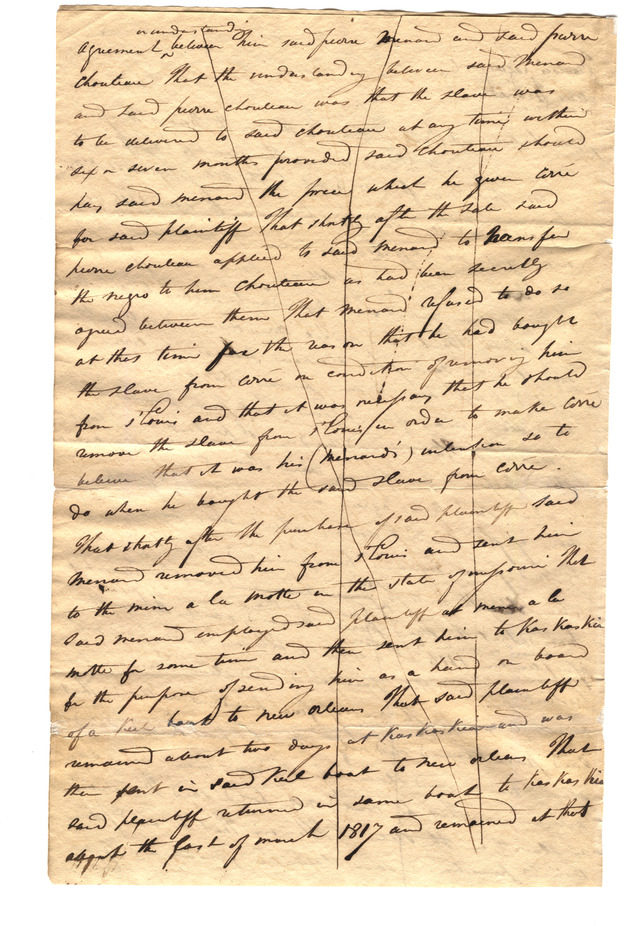 or understanding
agreement between him said pierre menard and said pierre
Chouteau That the understanding between said Menard
and said pierre chouteau was that the slave was
to be delivered to said chouteau at any time within
six or seven months provided said Chouteau should
pay said menard the price which he given Corré
for said plaintiff That shortly after the sale said
pierre chouteau applied to said Menard to transfer
the negro to him Chouteau as had been secretly
agreed between them That Menard refused to do so
at this time for the reason that he had bought
the slave from Corré on condition of removing him
from St Louis and that it was necessary that he should
remove the slave from St Louis in order to make Corré
believe that it was his (Menard's) intention so to
do when he bought the said slave from Corré.
That shortly after the purchase of said plaintiff said
Menard removed him from St Louis and sent him
to the mine a la motte in the state of missouri That
said menard employed said plaintiff at mine a la
motte for some time and then sent him to KasKasKia
for the purpose of sending him as a hand on board
of a Keel boat to new orleans That said plaintiff
remained about two days at KasKasKia and was
then sent in said Keel boat to new orleans That
said plaintiff returned in same boat to KasKasKia
about the last of march 1817 and remained at that